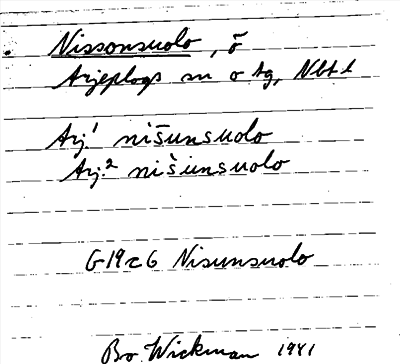 Nissonsuolo, ö
Arjeplogs sn o tg, Nbt l
Arj.¹ nišunsuolo
Arj.² nišunsuolo
G19c6 Nisunsuolo
Bo Wickman 1941